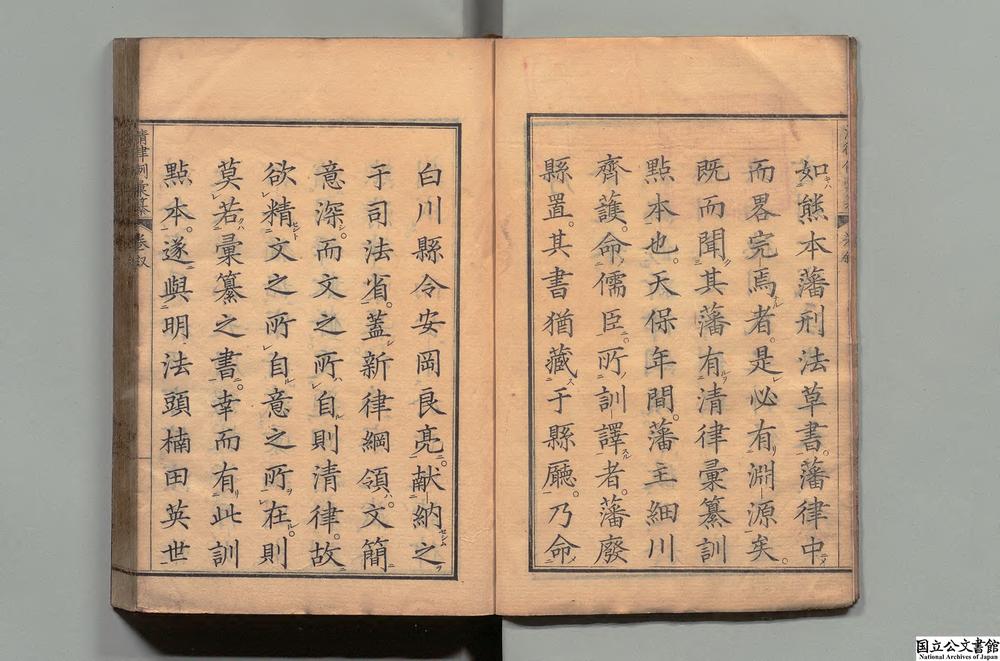 如熊本藩刑法草書。藩律中
而畧完焉者。是必有淵源矣。
既而聞其藩有清律彙纂訓
點本也。天保年間。藩主細川
齊護。命儒臣。所訓譯者。藩廢
縣置。其書猶藏于縣廳。乃命
白川縣令安岡良亮。献納之
于司法省。蓋新律綱領。文簡
意深。而文之所自則清律。故
欲精文之所自意之所在。則
莫若彙纂之書。幸而有此訓
點本。遂與明法頭楠田英世
清律例彙纂 卷叙
国立公文書館
National Archives of Japan